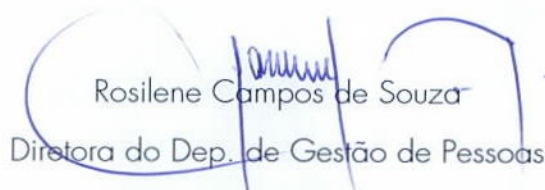 Rosilene Campos de Souza
Diretora do Dep. de Gestão de Pessoas